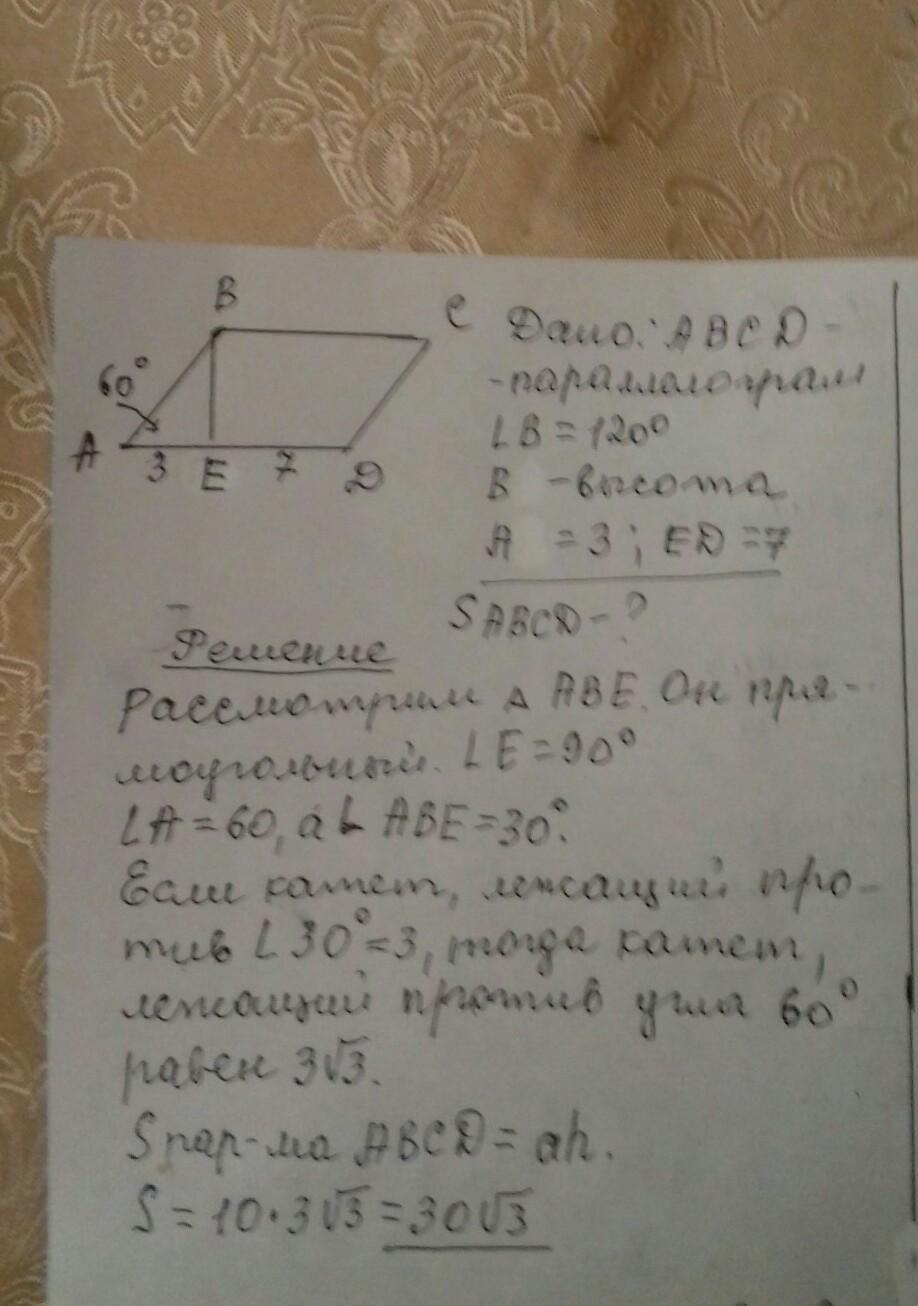 B
C
60°
A 3 E 7 D
Дано: ABCD -
- параллелограм
∠B = 120°
B - высота
A = 3; ED = 7
SABCD - ?
Решение
Рассмотрим △ ABE. Он пря-
моугольный. ∠E = 90°
∠A = 60, а ∠ ABE = 30°.
Если катет, лежащий про-
тив ∠30° = 3, тогда катет,
лежащий против угла 60°
равен 3√3.
S пар-ма ABCD = ah.
S = 10 · 3√3 = 30√3